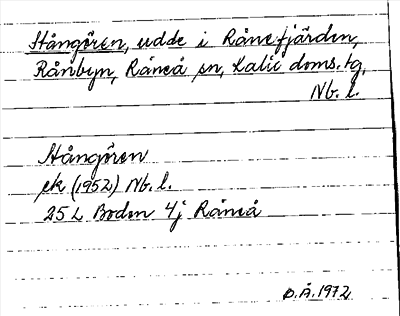 Stångören, udde i Rånefjärden,
Rånbyn, Råneå sn, Kalix doms. tg,
Nb. l.
Stångören
ek (1952) Nb. l.
25 L Boden 4j Råneå
O.Å. 1972